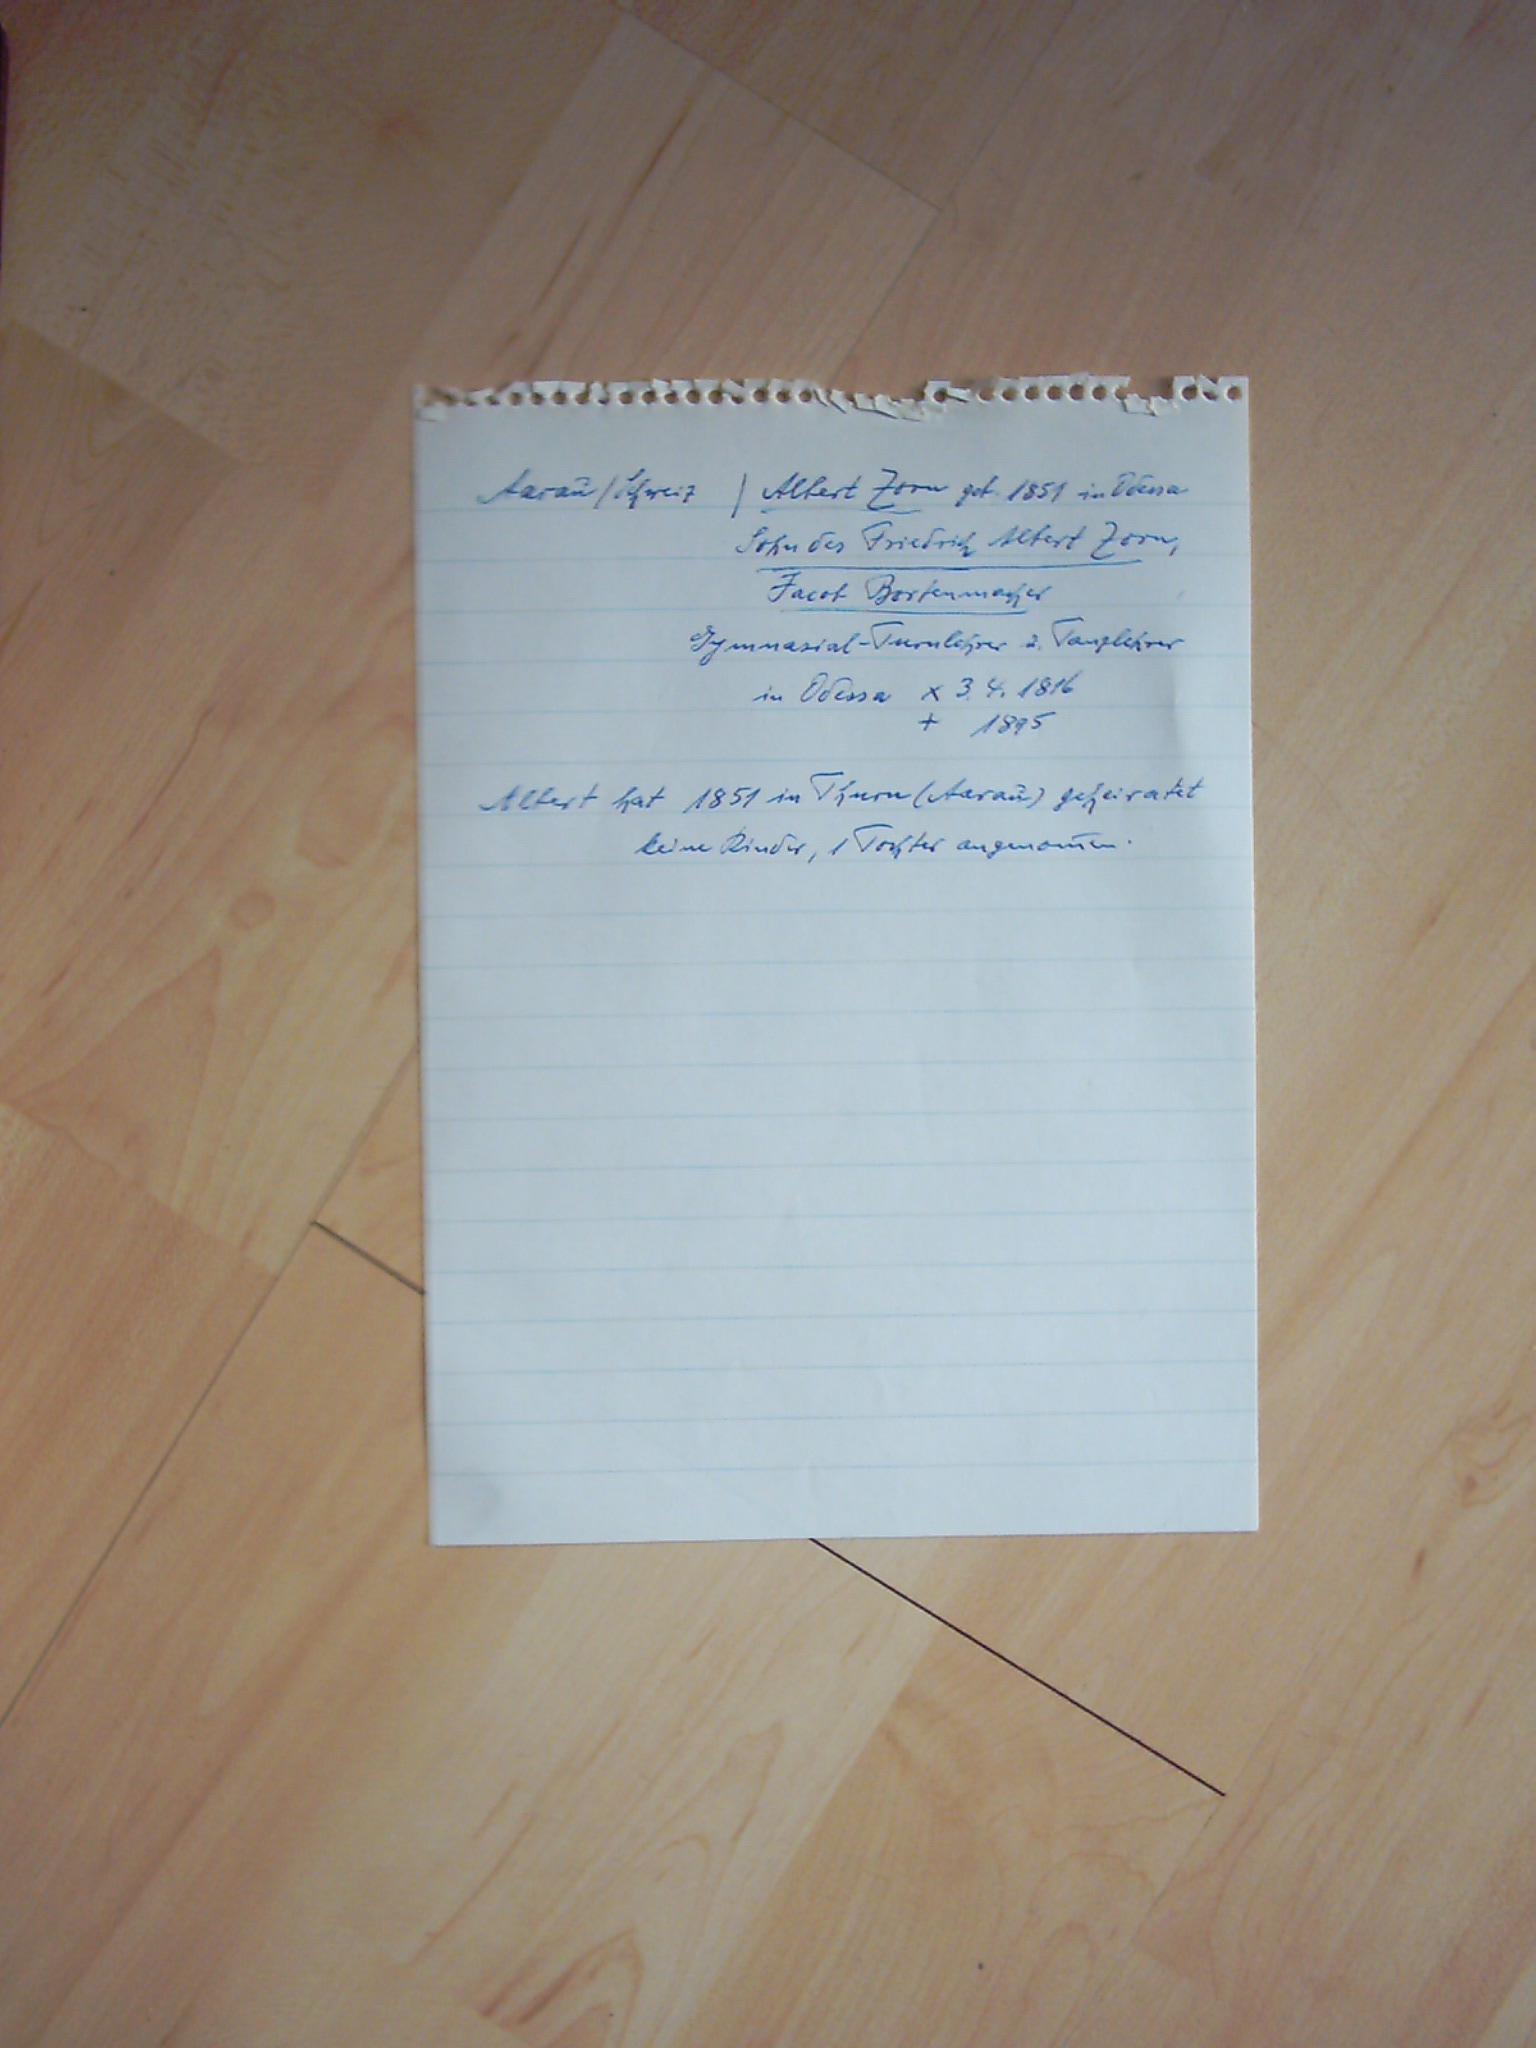 Aarau / Schweiz / Albert Zorn geb. 1851 in Odessa
Sohn des Friedrich Albert Zorn,
Jacob Bortenmacher
Gymnasial-Turnlehrer u. Tanzlehrer
in Odessa x 3. 4. 1816
+ 1895
Albert hat 1851 in Thurn (Aarau) geheiratet
keine Kinder, 1 Tochter angenom̄en.